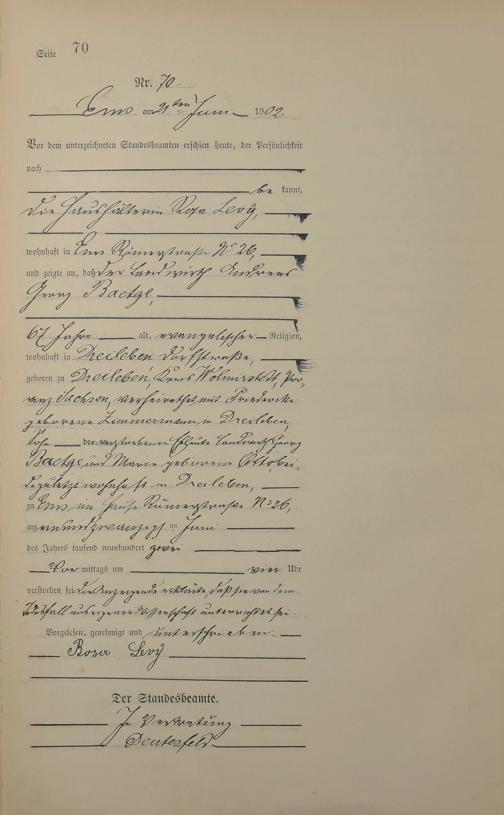 Seite 70
Nr. 70.
Ems am 21ten Juni 1902
Vor dem unterzeichneten Standesbeamten erschien heute, der Persönlichkeit
nach
be kannt,
die Haushälterin Rosa Levÿ,
wohnhaft in Ems Römerstraße No 26,
und zeigte an, daß der Landwirth Andreas
Georg Baetge,
67 Jahre alt, evangelischer Religion,
wohnhaft in Dreileben Dorfstraße,
geboren zu Dreileben, Kreis Wolmirstedt, Pro-
vinz Sachsen, verheirathet mit Friederike
geborene Zimmermann, in Dreileben,
Sohn der verstorbenen Eheleute Landwirth Georg
Baetge und Marie geborene
de zuletzt wohnhaft in Dreileben,
zu Ems im Hause Römerstraße No 26,
am einundzwanzigsten Juni
des Jahres tausend neunhundert zwei
Vor mittags um vier Uhr
verstorben sei, die Anzeigende erklärte, daß sie von dem
Todesfall aus eigener Wissenschaft unterrichtet sei.
Vorgelesen, genehmigt und unterschrieben.
Rosa Levÿ
Der Standesbeamte.
In Vertretung